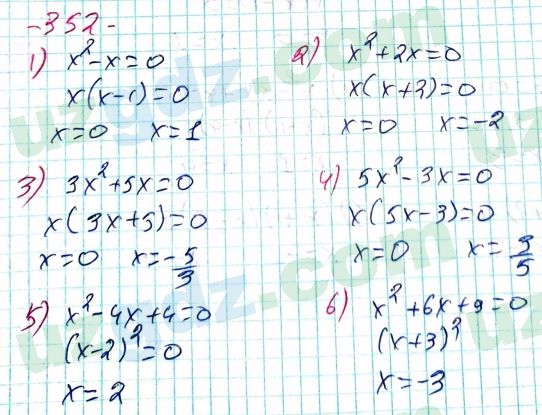 -352-
1) x² - x = 0
x(x-1) = 0
x = 0 x = 1
2) x² + 2x = 0
x(x+2) = 0
x = 0 x = -2
3) 3x² + 5x = 0
x(3x+5) = 0
x = 0 x = -5/3
4) 5x² - 3x = 0
x(5x-3) = 0
x = 0 x = 3/5
5) x² - 4x + 4 = 0
(x-2)² = 0
x = 2
6) x² + 6x + 9 = 0
(x+3)²
x = -3
uzgdz.com